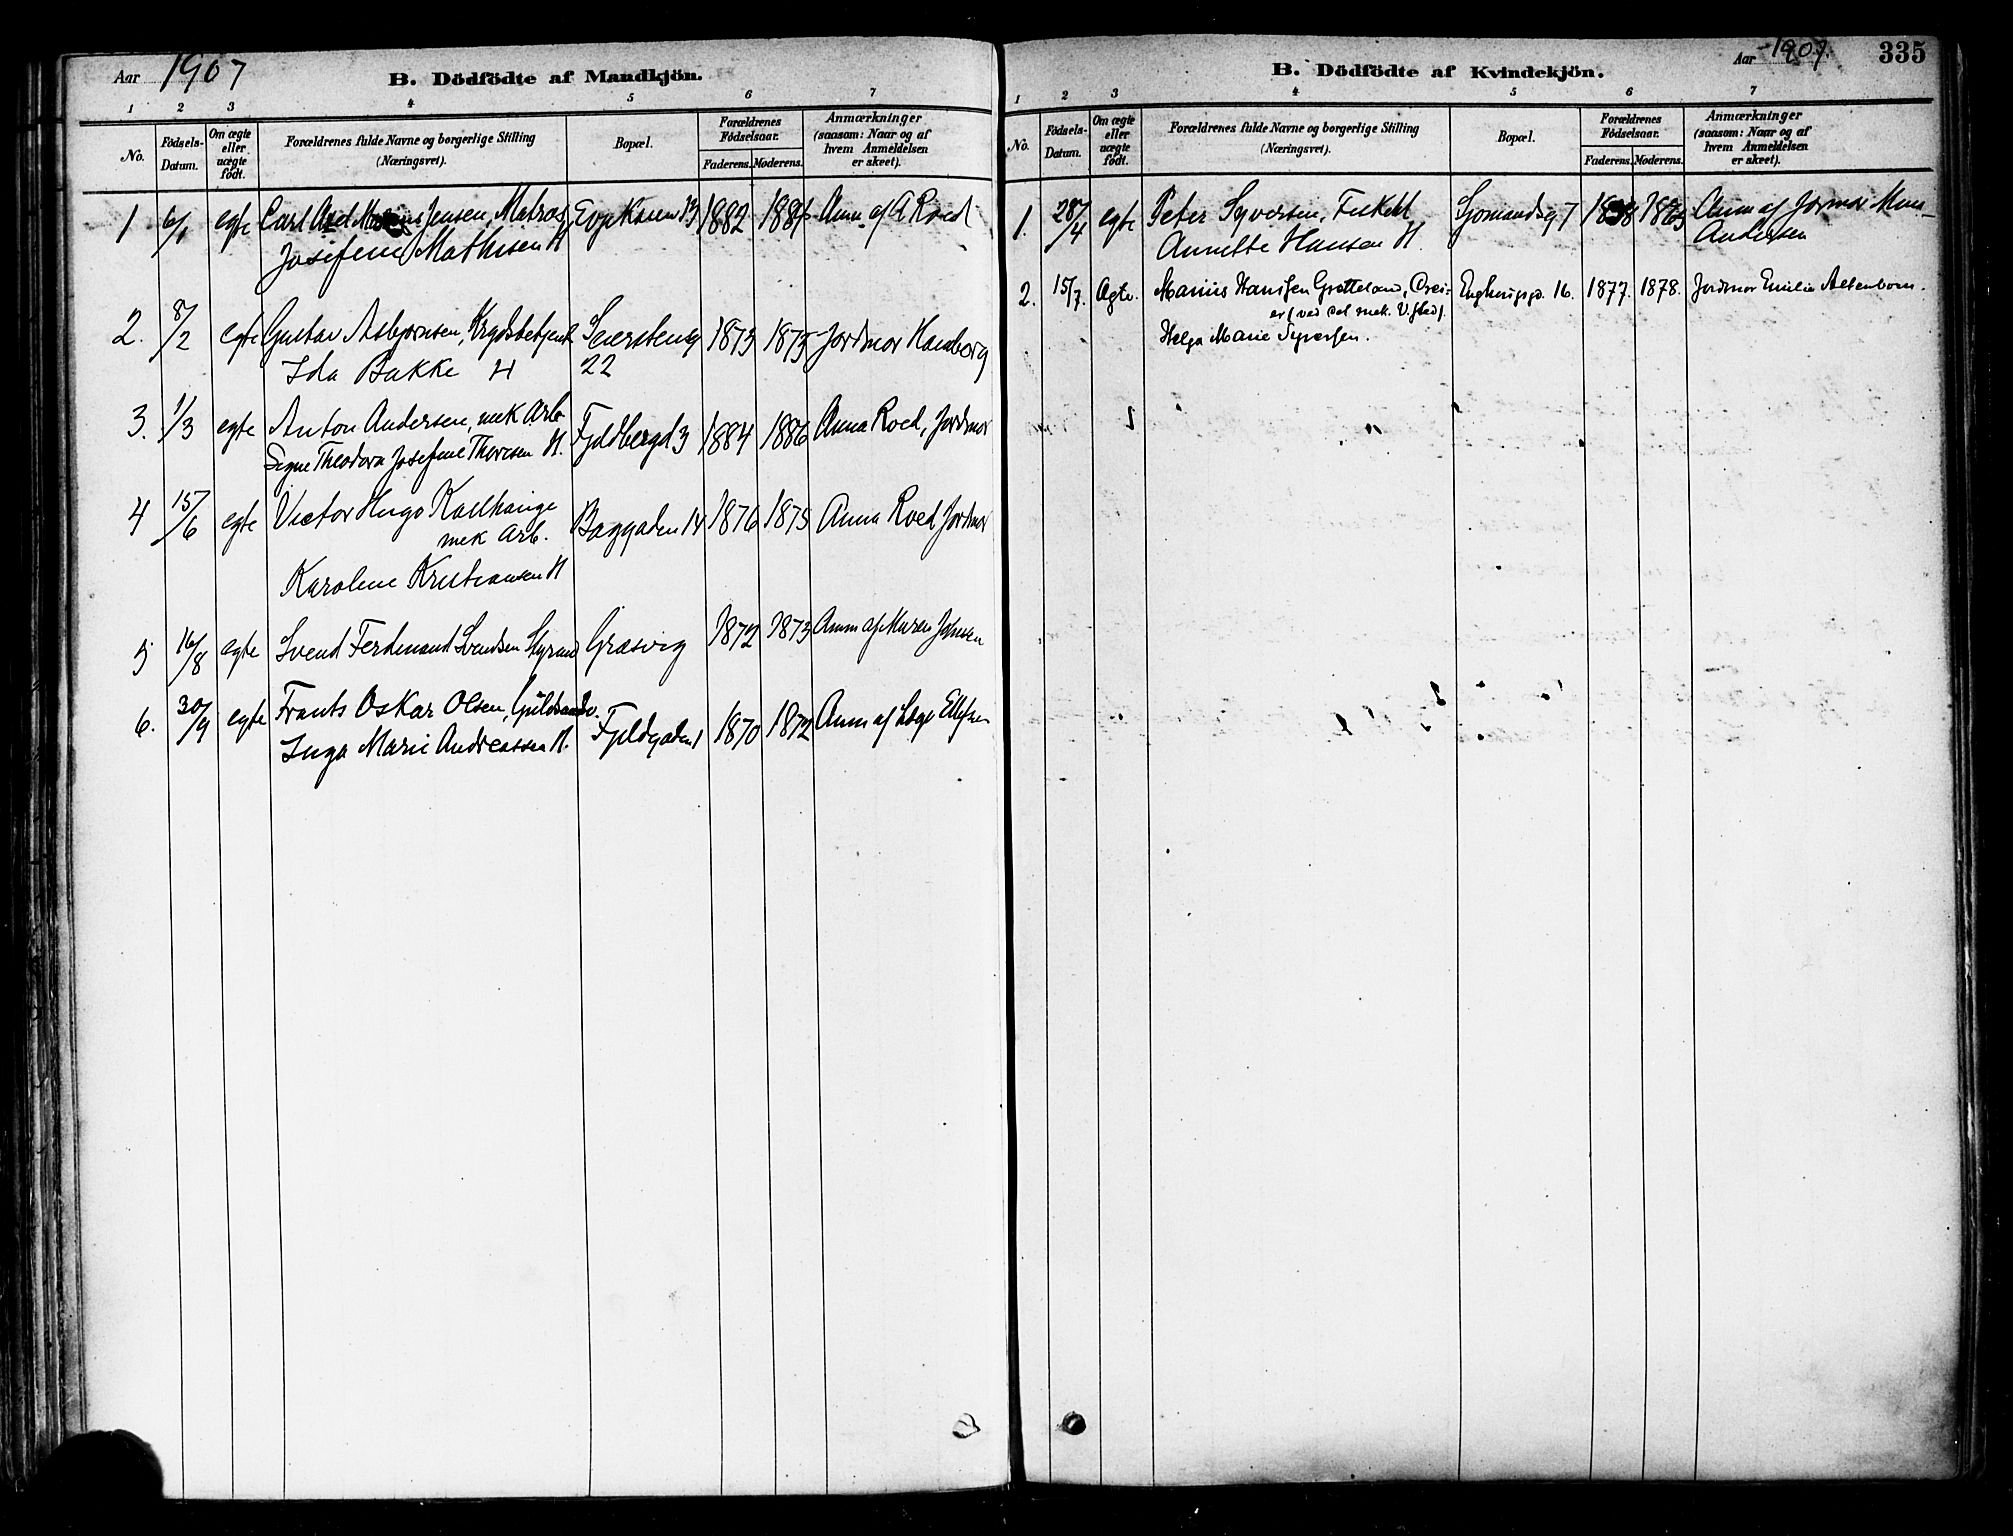 Aar 1907
B. Dödfödte af Mandkjön.
1 2 3 4 5 6 7
No.
Födsels-Datum.
Om ægte eller uægte födt.
Forældrenes fulde Navne og borgerlige Stilling
(Næringsvei).
Bopæl.
Forældrenes Födselsaar.
Faderens. Moderens.
Anmærkninger
(saasom: Naar og af
hvem Anmeldelsen
er skeet).
1 6/1 egte Carl Axel Jensen, Matros 13 1882 Anm. af A Roed
Josefine Mathisen H
2. 8/2 egte Gustav Asbjørnsen, 1873 1875 Jordmor Hamborg
Ida Bakke H 22
3. 1/3 egte Anton Andersen, mek Arb Fjeldbergd 3 1884 1886 Anna Roed, Jordmor
Signe Theodora Josefine Thoresen H.
4 15/6 egte Victor Hugo Baggaden 14 1876 1875 Anna Roed Jordmor
mek Arb.
Karoline Kristiansen H
5 16/8 egte Svend Ferdinand Svendsen Styrmd Græsvig 1872 1873 Anm af Maren Johnsen
6. 30/9 egte Frants Oskar Olsen, Fjeldgaden 1 1870 1872 Anm af Læge Ellefsen
Inga Marie Andreassen H.
Aar 1907.
335
B. Dödfödte af Kvindekjön.
1 2 3 4 5 6 7
No.
Födsels-Datum.
Om ægte eller uægte födt.
Forældrenes fulde Navne og borgerlige Stilling
(Næringsvei).
Bopæl.
Forældrenes Födselsaar.
Faderens. Moderens.
Anmærkninger
(saasom: Naar og af
hvem Anmeldelsen
er skeet).
1. 28/4 egte Peter Syversen, Sjomandsg 7 Anm af Jormor
Annette Hansen H. Andersen
2. 15/7. Ægte. Marius Hansen Grotteland, Drei- 16. 1877. 1878. Jordmor Emilie Altenborn.
er (ved det mek. V.sted).
Helga Marie Syversen.